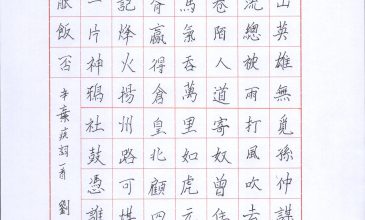 山英雄無覓孫仲謀
流總被雨打風吹去
巷陌人道寄奴曾住
馬氣吞萬里如虎元
胥贏得倉皇北顧四
記烽火揚州路可堪
一片神鴉社鼓憑誰
能飯否 辛棄疾詞一首 劉